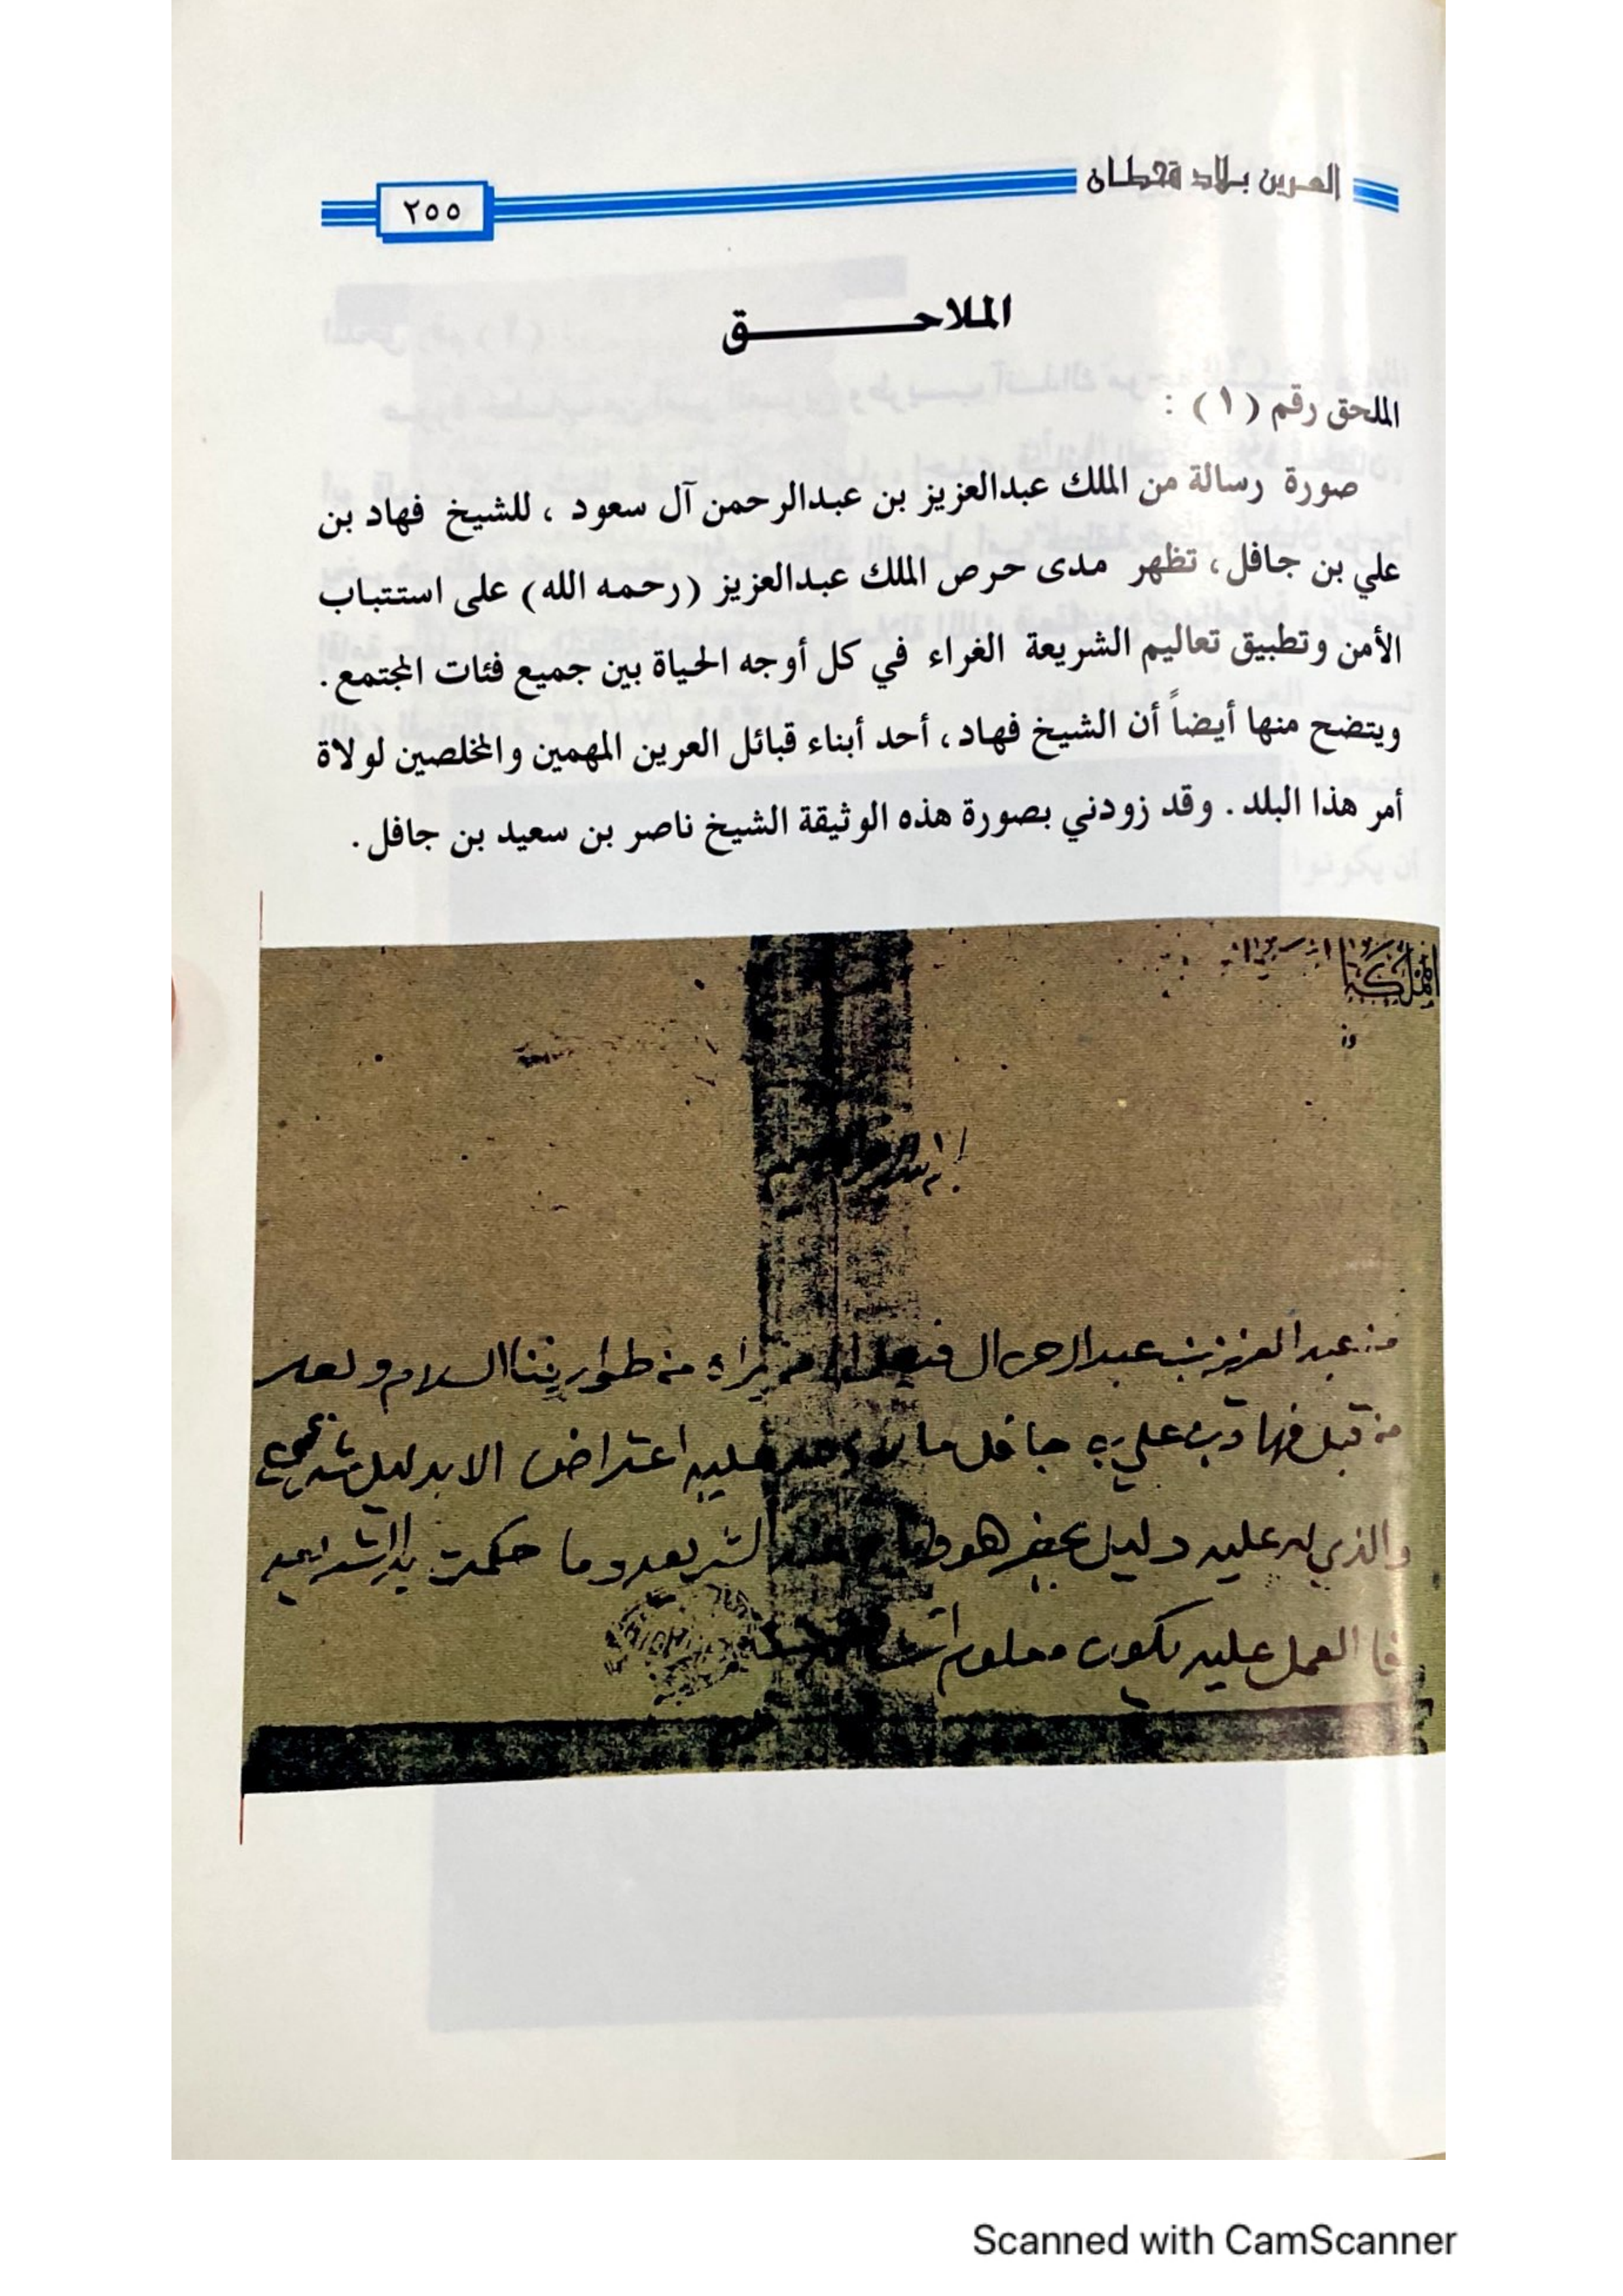 العرين بلاد قحطان
٢٥٥
الملاحق
الملحق رقم (١) :
صورة رسالة من الملك عبدالعزيز بن عبدالرحمن آل سعود ، للشيخ فهاد بن
علي بن جافل، تظهر مدى حرص الملك عبدالعزيز (رحمه الله) على استتباب
الأمن وتطبيق تعاليم الشريعة الغراء في كل أوجه الحياة بين جميع فئات المجتمع.
ويتضح منها أيضاً أن الشيخ فهاد، أحد أبناء قبائل العرين المهمين والمخلصين لولاة
أمر هذا البلد. وقد زودني بصورة هذه الوثيقة الشيخ ناصر بن سعيد بن جافل.
المملكة
من عبد العزيز بن عبد الرحمن ال فيصل يراه من طوارفنا السلام وبعد
من قبل فهاد بن علي بن جافل ما عليه اعتراض الا بدليل شرعي
والذي له عليه دليل يحضر هو الشريعه وما حكمت به الشريعه
فا العمل عليه يكون معلوم
Scanned with CamScanner